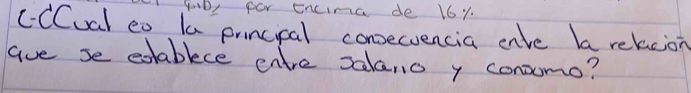 por encima de 16%
C-¿Cual es la principal consecuencia entre la relación
que se establece entre salario y consumo?